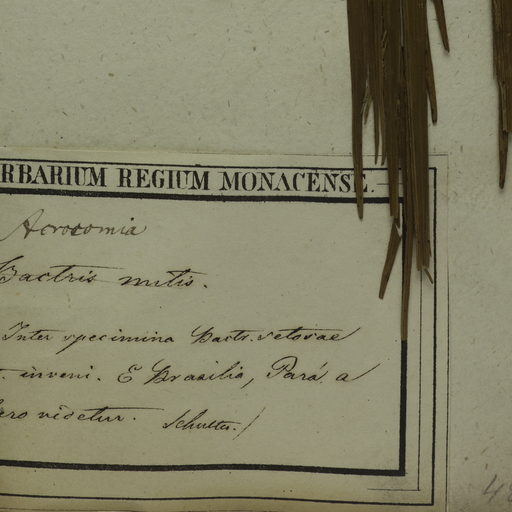 RBARIUM REGIUM MONACENSE.
Acrocomia
Bactris mitis.
Inter specimina Bactr. setosae
inveni. E Brasilia, Pará a
videtur. Schultes.
48